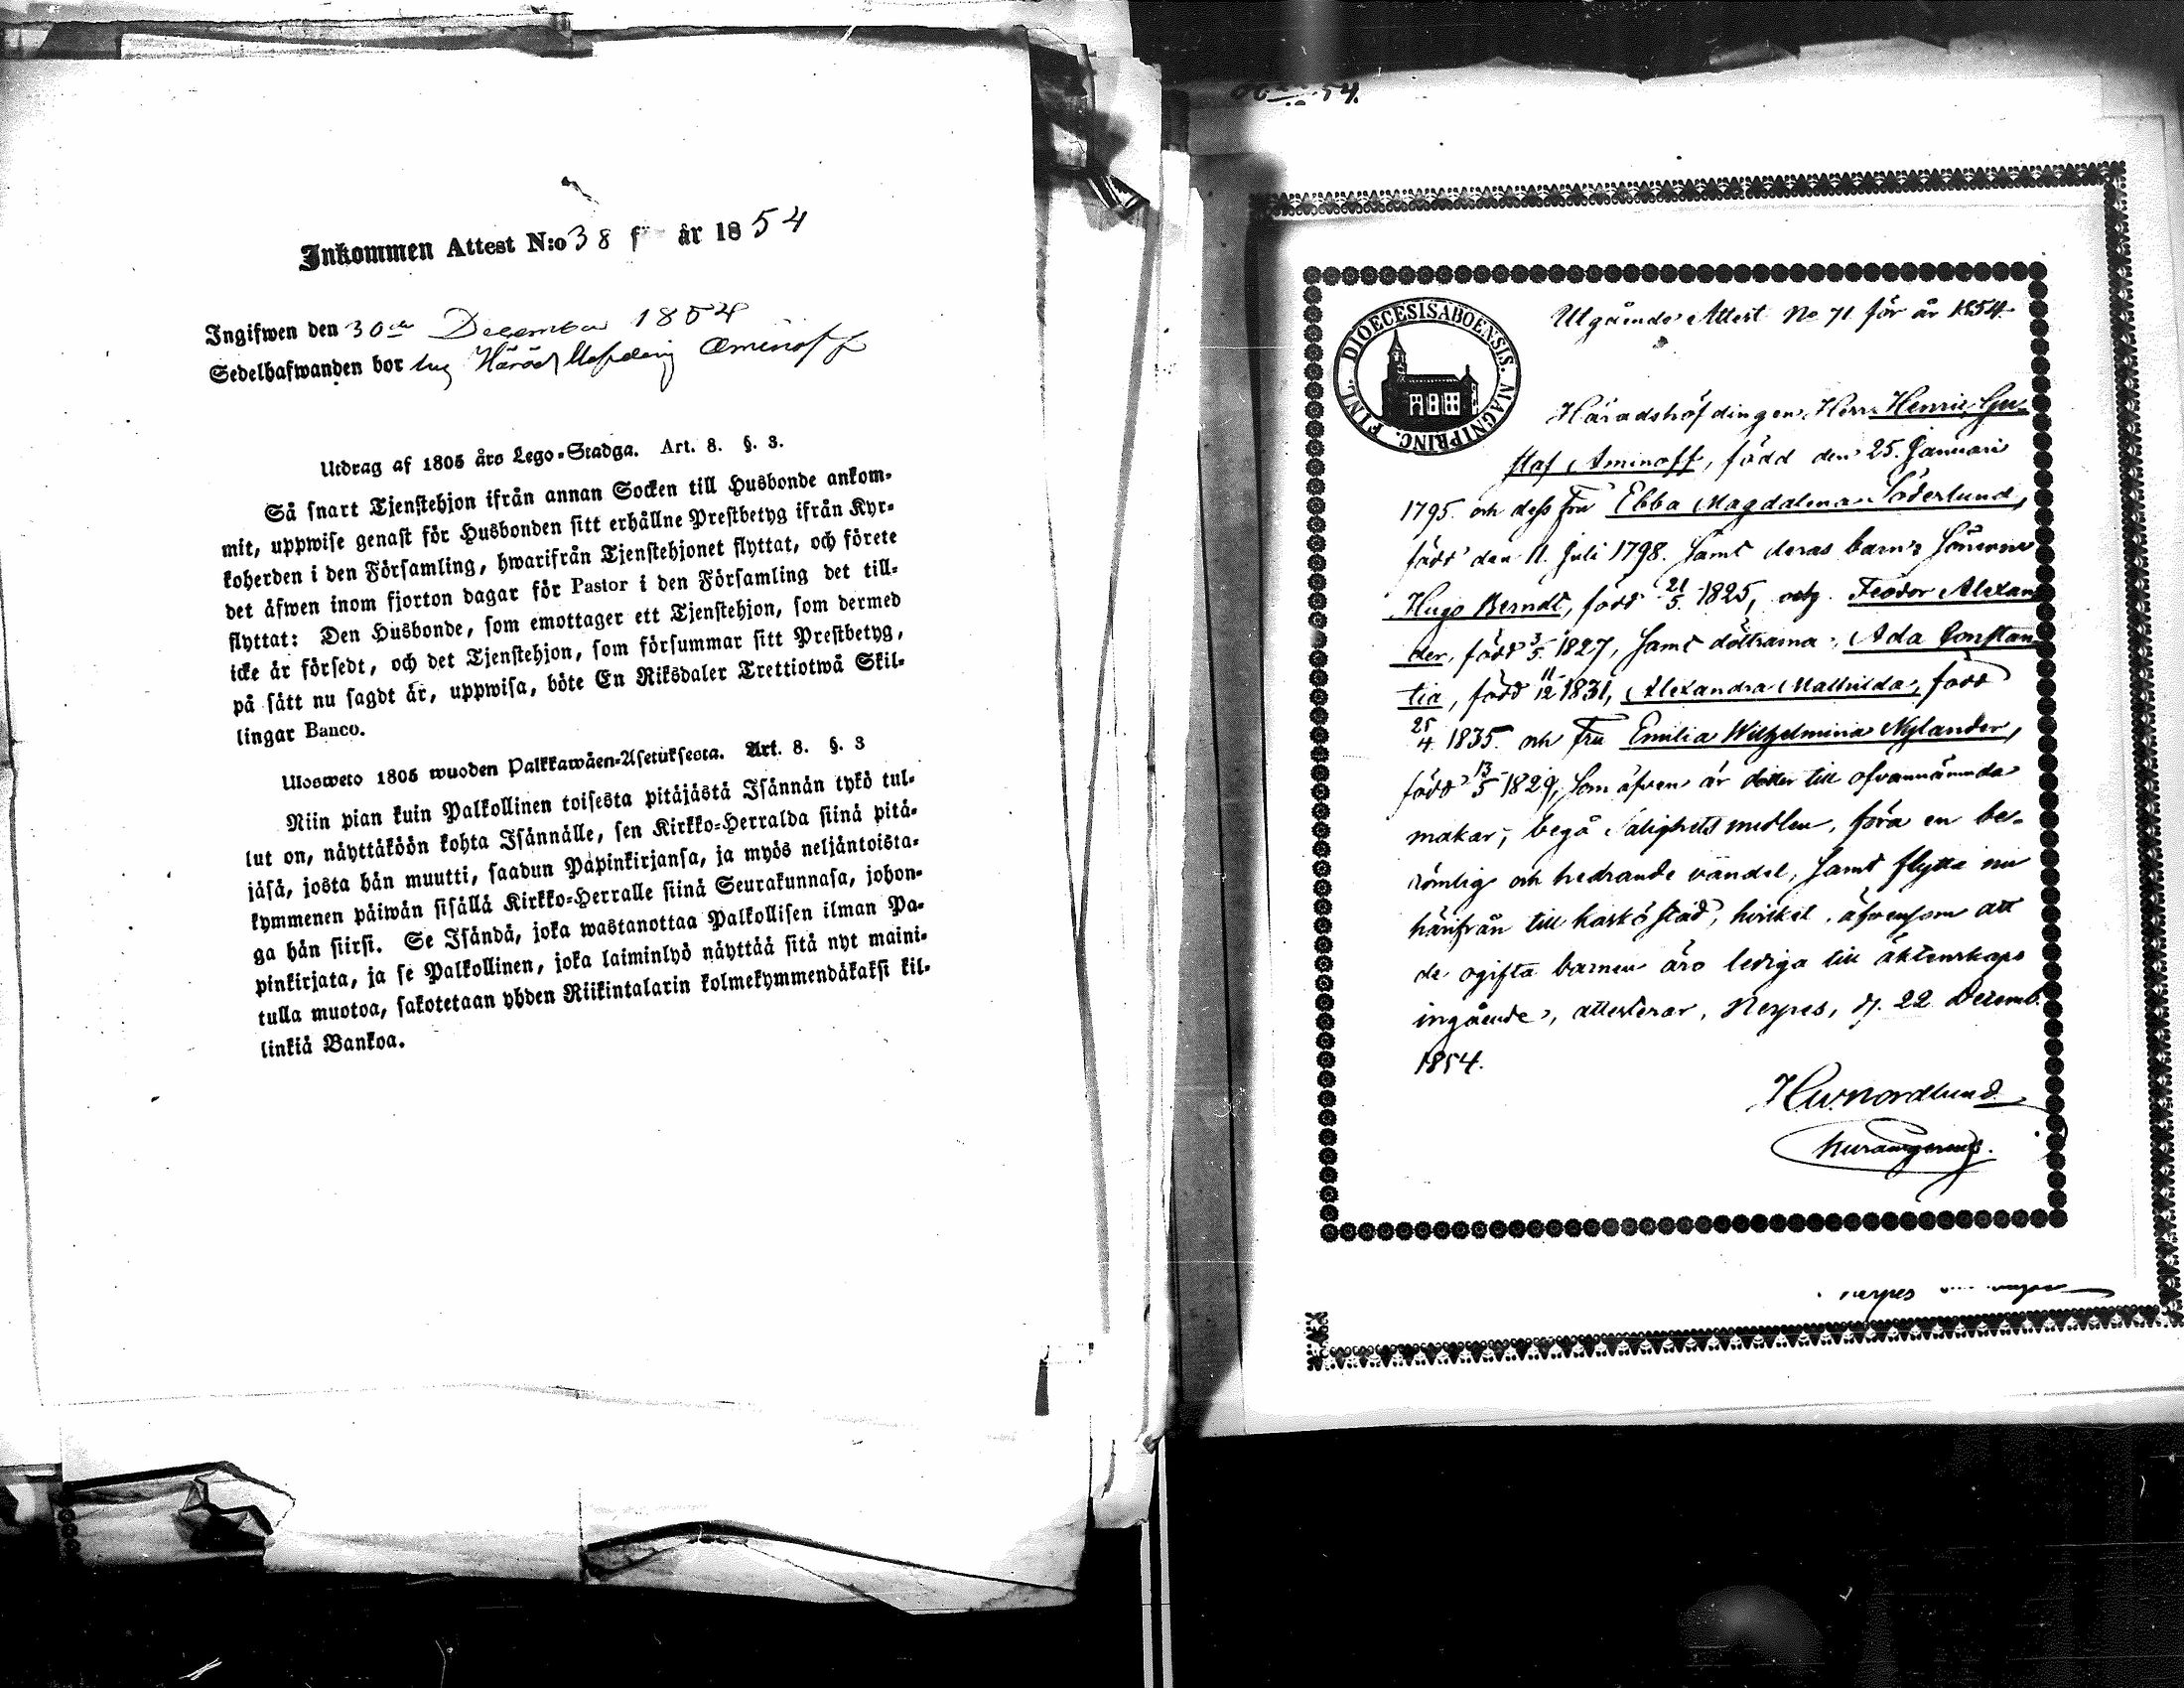 Inkommen Attest N:o 38 f år 1854
Ingifwen den 30de December 1854
Sedelhafwanden bor hug Härads Höfding Aminoff
Utdrag af 1805 års Lego-Stadga. Art. 8. §. 3.
Så snart Tjenstehjon ifrån annan Socken till Husbonde ankom-
mit, uppwise genast för Husbonden sitt erhållne Prestbetyg ifrån Kyr-
koherden i den Församling, hwarifrån Tjenstehjonet flyttat, och förete
det äfwen inom fjorton dagar för Pastor i den Församling det till-
flyttat: Den Husbonde, som emottager ett Tjenstehjon, som dermed
icke är försedt, och det Tjenstehjon, som försummar sitt Prestbetyg,
på sätt nu sagdt är, uppwisa, böte En Riksdaler Trettiotwå Skil-
lingar Banco.
Ulosweto 1805 wuoden Palkkawäen-Asetuksesta. Art. 8. §. 3
Niin pian kuin Palkollinen toisesta pitäjästä Isännän tykö tul-
lut on, näyttäköön kohta Isännälle, sen Kirkko-Herralda siinä pitä-
jäsä, josta hän muutti, saadun Papinkirjansa, ja myös neljäntoista-
kymmenen päiwän sisällä Kirkko-Herralle siinä Seurakunnasa, johon-
ga hän siirsi. Se Isändä, joka wastanottaa Palkollisen ilman Pa-
pinkirjata, ja se Palkollinen, joka laiminlyö näyttää sitä nyt maini-
tulla muotoa, sakotetaan yhden Riikintalarin kolmekymmendäkaksi kil-
linkiä Bankoa.
54.
FINL. DIOECESIS ABOENSIS. MAGNI PRINC.
Utgående Attest No 71 för år 1854.
Häradshöfdingen, Herr Henric Gu-
staf Aminoff, född den 25. Januari
1795. och dess Fru Ebba Magdalena Söderlund,
född den 11. Juli 1798. samt deras barn: Sönerne
Hugo Berndt, född 21/5 1825, och Feodor Alexan
der, född 3/5 1827, samt döttrarna: Ada Constan
tia, född 11/12 1831, Alexandra Mathilda, född
25/4 1835. och Fru Emilia Wilhelmina Nylander,
född 13/5 1829, som äfven är dotter till ofvannämnda
makar, begå Salighetsmedlen, föra en be-
römlig och hedrande vandel, samt flytta nu
härifrån till Kaskö stad, hvilket, äfvensom att
de ogifta barnen äro lediga till äktenskaps
ingående, attesterar, Nerpes, d. 22 Decemb.
1854.
Nordlund
Nerpes